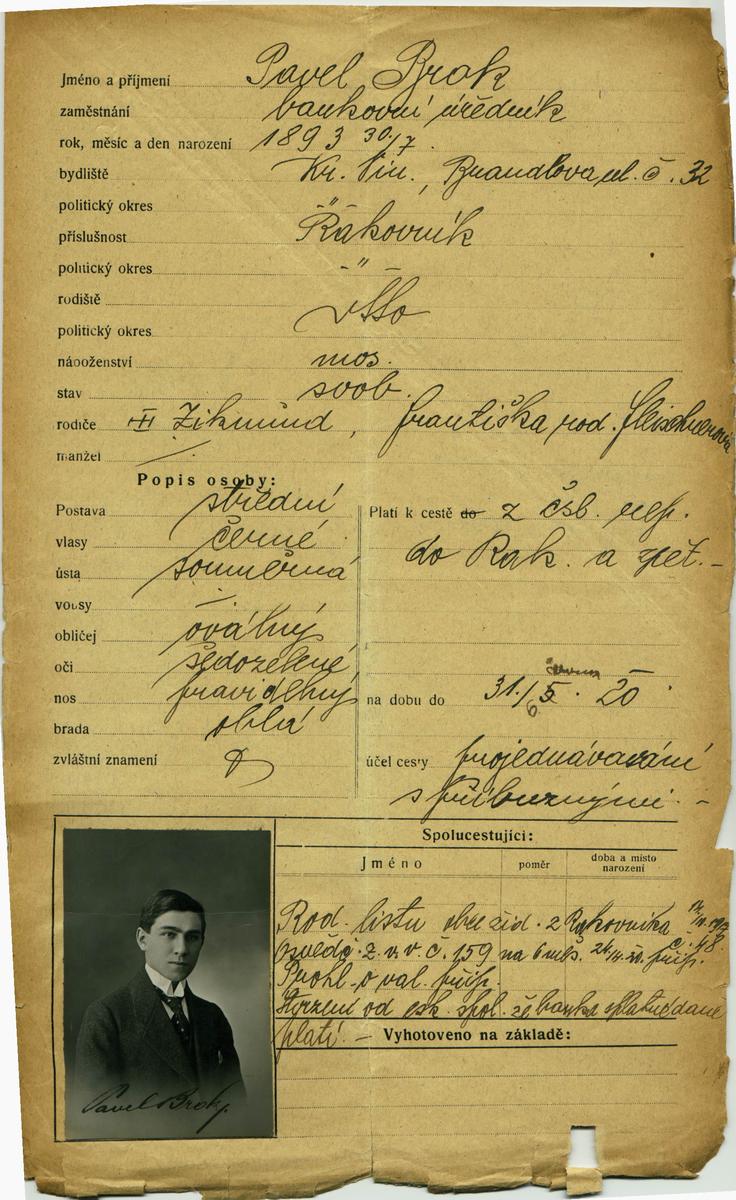 Jméno a příjmení Pavel Brok
zaměstnání bankovní úředník
rok, měsíc a den narození 1893 30/7.
bydliště Kr. Vin., Brandlova ul. č. 32
politický okres - " -
příslušnost Rakovník
politický okres - " -
rodiště
politický okres
náboženství mos.
stav svob.
rodiče Zikmund, Františka rod. Fleischnerová
manžel
Popis osoby:
Postava střední
vlasy černé
ústa souměrná
vousy —
obličej oválný
oči šedozelené
nos pravidelný
brada oblá
zvláštní znamení
Platí k cestě do z čsl. rep.
do Rak. a zpět. —
na dobu do 31./5. 20
6
účel cesty projednávání
s příbuznými. —
Spolucestující:
Jméno poměr doba a místo narození
Rod. listu obce žid. z Rakovníka
osvědč. z. v. v. č. 159 na 6 měs.
Prohl. o val. přísp.
od esk. spol. že banka daně
platí. —
Vyhotoveno na základě:
Pavel Brok